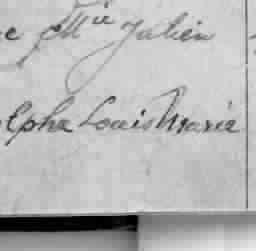 e M^ie Julien
olphe Louis Marie